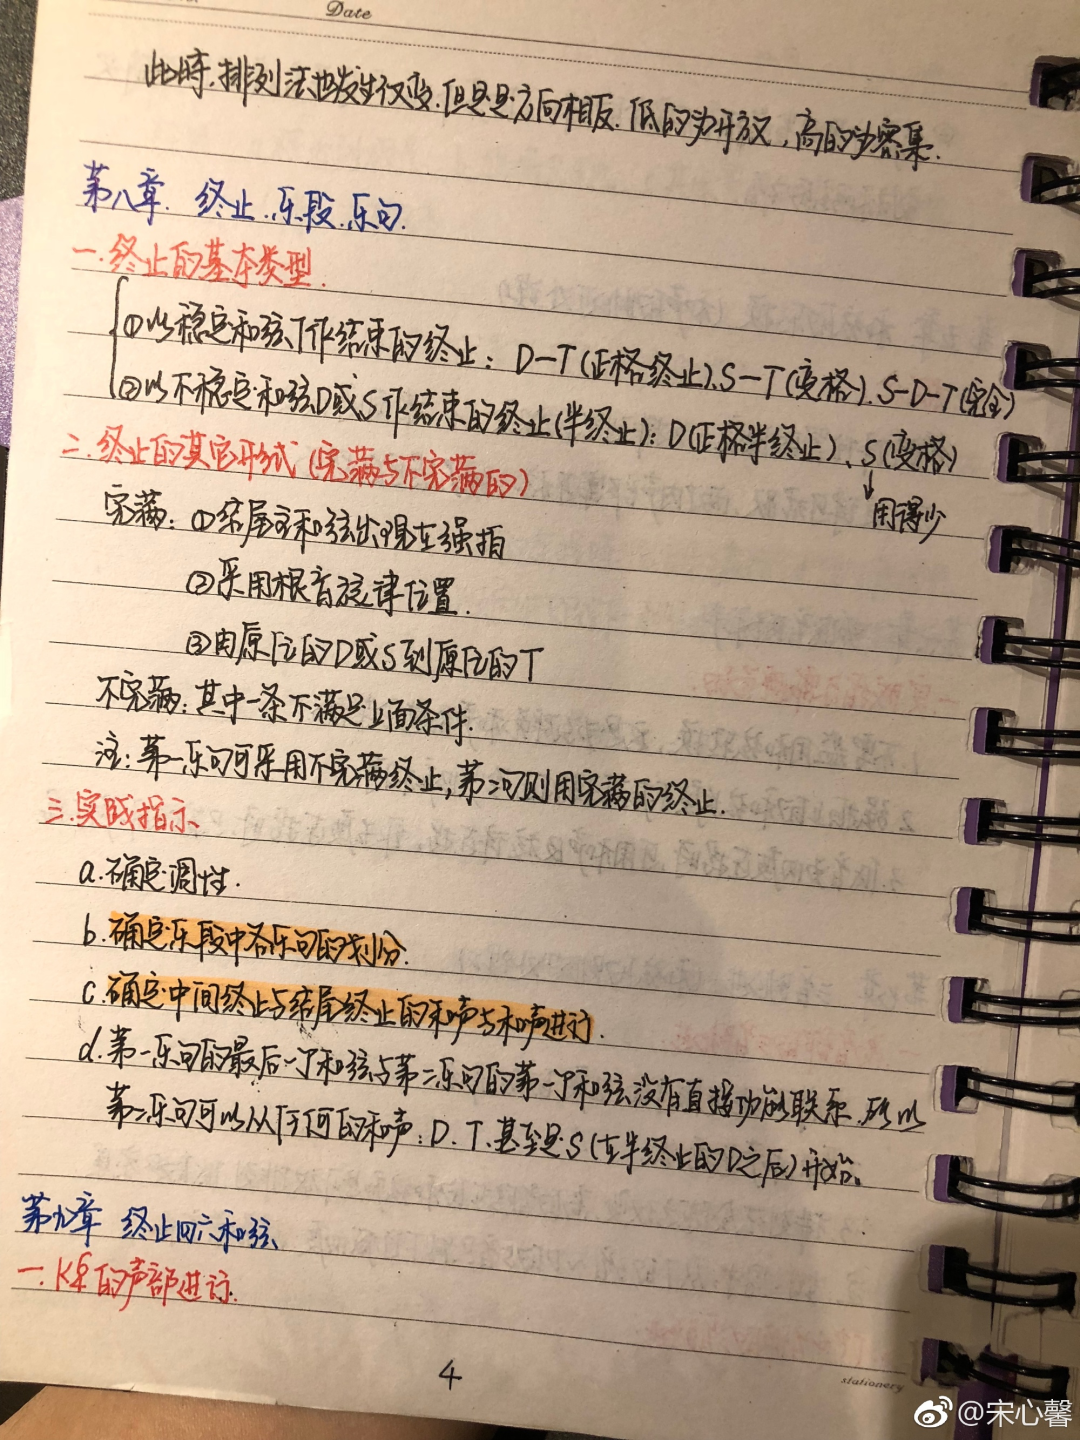 Date
此时,排列法也发生改变.但是是方向相反.低的为开放,高的为密集.
第八章. 终止.乐段.乐句.
一.终止的基本类型.
①以稳定和弦T作结束的终止: D—T(正格终止).S—T(变格).S-D-T(完全)
②以不稳定和弦D或S作结束的终止(半终止): D(正格半终止)、S(变格)
↓
用得少
二.终止的其它形式(完满与不完满的)
完满: ①结尾主和弦出现在强拍
②采用根音旋律位置.
③由原位的D或S到原位的T
不完满: 其中一条不满足上面条件.
注: 第一乐句可采用不完满终止,第二句则用完满的终止.
三.实践指示
a.确定调性.
b.确定乐段中各乐句的划分.
c.确定中间终止与结尾终止的和声与和声进行.
d.第一乐句的最后一个和弦与第二乐句的第一个和弦没有直接功能联系.所以
第二乐句可以从任何的和声: D.T.甚至是S(在半终止的D之后)开始。
第九章 终止四六和弦
一.K⁶₄的声部进行.
4
stationery
@宋心馨